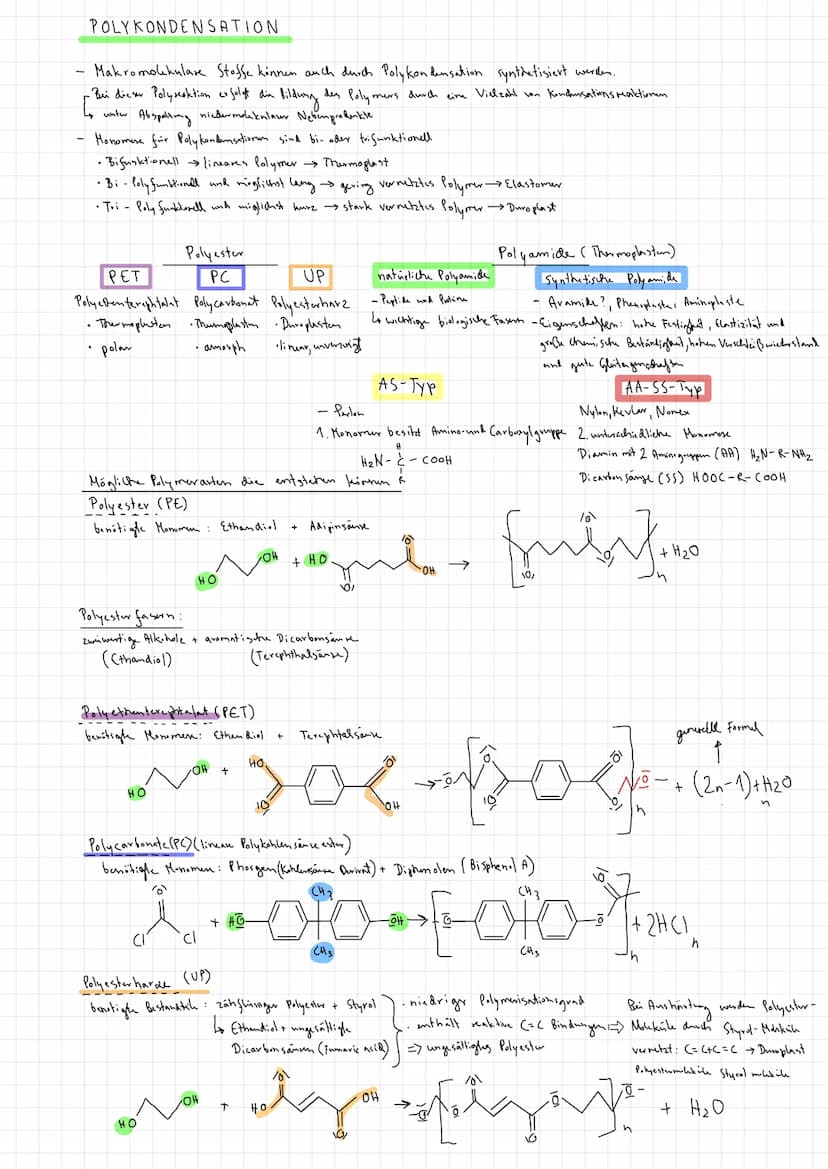 POLYKONDENSATION
– Makromolekulare Stoffe können auch durch Polykondensation synthetisiert werden.
Bei dieser Polyreaktion erfolgt die Bildung des Polymers durch eine Vielzahl von Kondensationsreaktionen
unter Abspaltung niedermolekularer Nebenprodukte
– Monomere für Polykondensationen sind bi- oder trifunktionell
• Bifunktionell → lineares Polymer → Thermoplast
• Bi-Polyfunktionell und möglichst lang → gering vernetztes Polymer → Elastomer
• Tri-Polyfunktionell und möglichst kurz → stark vernetztes Polymer → Duroplast
Polyester
PET
PC
UP
Polyethenterephtalat
Polycarbonat
Polyesterharz
• Thermoplasten
• Thermoplasten
• Duroplasten
• polar
• amorph
• linear, unverzweigt
Polyamide (Thermoplasten)
natürliche Polyamide
synthetische Polyamide
– Peptide und Proteine
↳ wichtige biologische Fasern
– Aramide?, Phenoplaste, Aminoplaste
– Eigenschaften: hohe Festigkeit, Elastizität und
große chemische Beständigkeit, hohen Verschleißwiederstand
und gute Gleiteigenschaften
AS-Typ
AA-SS-Typ
– Perlon
1. Monomer besitzt Amino- und Carboxylgruppe
H
H₂N-C-COOH
R
Nylon, Kevlar, Nomex
2. unterschiedliche Monomere
Diamin mit 2 Aminogruppen (AA) H₂N-R-NH₂
Dicarbonsäure (SS) HOOC-R-COOH
Mögliche Polymerarten die entstehen können
Polyester (PE)
benötigte Monomere: Ethandiol + Adipinsäure
HO OH + HO O O OH → [ O O O ]n + H2O
Polyesterfasern:
zweiwertige Alkohole + aromatische Dicarbonsäure
(Ethandiol) (Terephthalsäure)
Polyethenterephtalat (PET)
benötigte Monomere: Ethandiol + Terephtalsäure
generelle Formel
HO OH + HO O O OH → O [ O O O O ]n O – + (2n-1) + H2O
n
Polycarbonate (PC) (lineare Polykohlensäureester)
benötigte Monomere: Phosgen (Kohlensäure Derivat) + Diphenolen (Bisphenol A)
O Cl Cl + HO CH3 CH3 OH → [ O CH3 CH3 O O ]n + 2HCl
n
Polyesterharze (UP)
benötigte Bestandteile: zähflüssiger Polyester + Styrol
↳ Ethandiol + ungesättigte
Dicarbonsäuren (Fumaric acid)
• niedriger Polymerisationsgrad
• enthält reaktive C=C Bindungen
⇒ ungesättigtes Polyester
⇒ Bei Aushärtung werden Polyester-
Moleküle durch Styrol-Moleküle
vernetzt: C=C + C=C → Duroplast
Polyestermoleküle Styrolmoleküle
HO OH + HO O O OH → O [ O O O O ]n O – + H2O